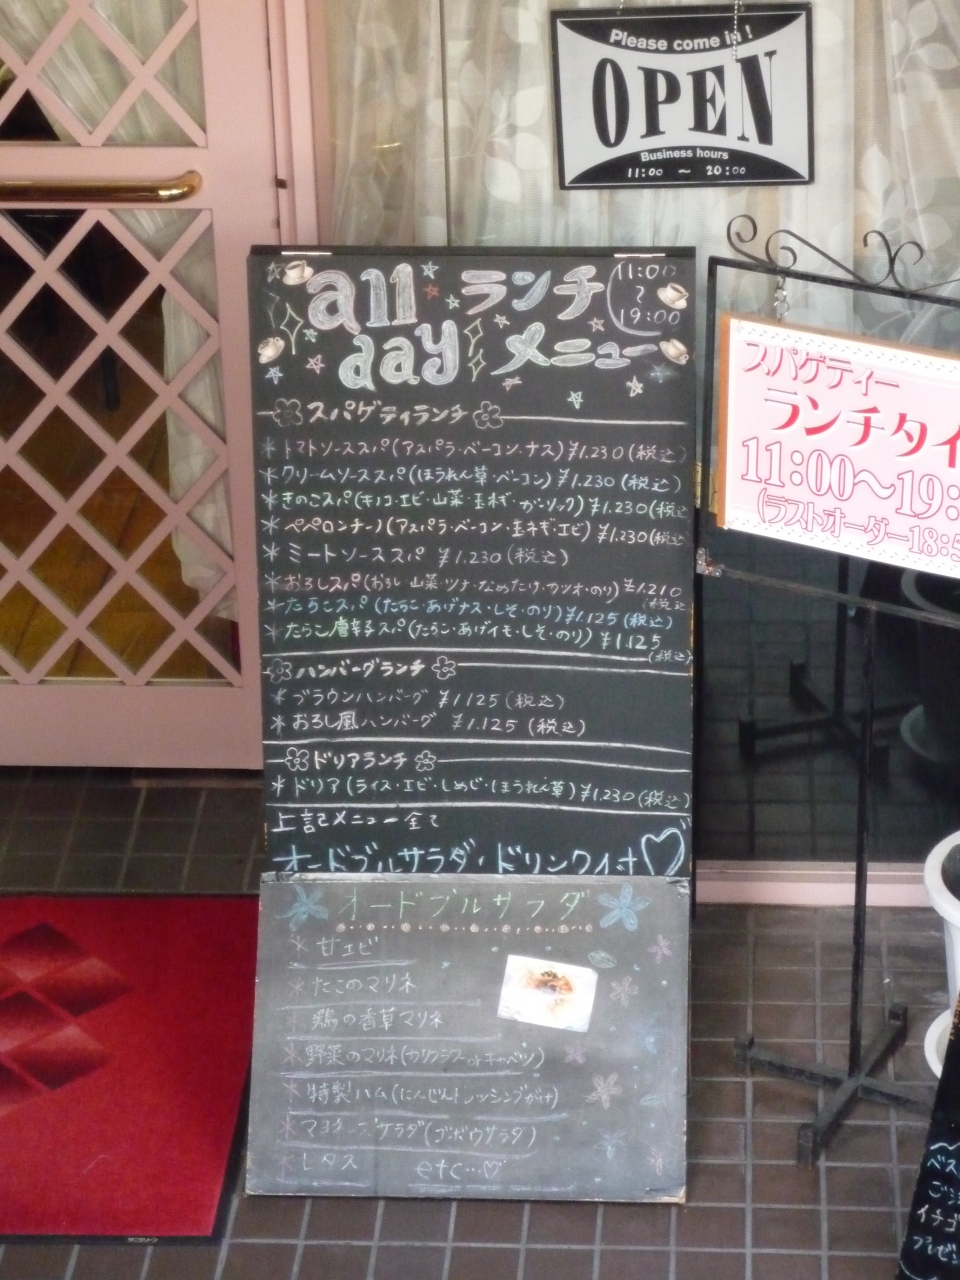 Please come in !
OPEN
Business hours
11:00 ～ 20:00
all ランチ
day メニュー
11:00
～
19:00
スパゲティランチ
＊トマトソーススパ(アスパラ・ベーコン・ナス)¥1.230(税込)
＊クリームソーススパ(ほうれん草・ベーコン)¥1.230(税込)
＊きのこスパ(キノコ・エビ・山菜・玉ネギ・ガーリック)¥1.230(税込
＊ペペロンチーノ(アスパラ・ベーコン・玉ネギ・エビ)¥1.230(税込
＊ミートソーススパ ¥1.230(税込)
＊おろしスパ(おろし 山菜・ツナ・なめたけ・カツオ・のり)¥1.210
(税込
＊たらこスパ(たらこ・あげナス・しそ・のり)¥1.125(税込)
＊たらこ唐辛子スパ(たらこ・あげイモ・しそ・のり)¥1.125
(税込)
ハンバーグランチ
＊ブラウンハンバーグ ¥1125(税込)
＊おろし風ハンバーグ ¥1.125(税込)
ドリアランチ
＊ドリア(ライス・エビ・しめじ・ほうれん草)¥1.230(税込)
上記メニュー全て
オードブルサラダ・ドリンク付
オードブルサラダ
＊甘エビ
＊たこのマリネ
＊鶏の香草マリネ
＊野菜のマリネ(カリフラワーorキャベツ)
＊特製ハム(にんじんドレッシングがけ)
＊マヨネーズサラダ(ゴボウサラダ)
＊レタス etc…♡
スパゲティー
ランチタイ
11:00〜19:
(ラストオーダー18:5
ベス
イチゴ
プレゼン